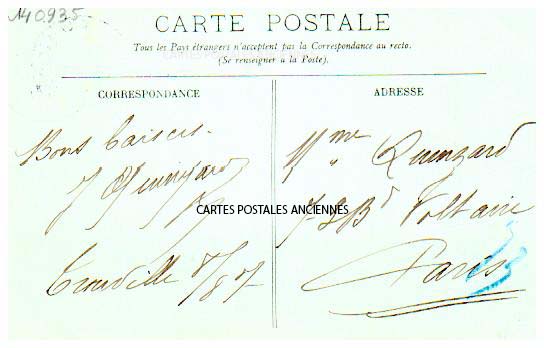 140935
CARTE POSTALE
Tous les Pays étrangers n'acceptent pas la Correspondance au recto.
(Se renseigner à la Poste).
CORRESPONDANCE
ADRESSE
Bons baisers.
J Quinzard
CARTES POSTALES ANCIENNES
Trouville 8/8 07
Mme Quinzard
Bd Voltaire
Paris